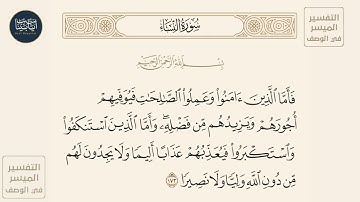 سُورَةُ النِّسَاءِ
التفسير
الميسر
في الوصف
بِسْمِ اللَّهِ الرَّحْمَٰنِ الرَّحِيمِ
فَأَمَّا الَّذِينَ ءَامَنُوا وَعَمِلُوا الصَّٰلِحَٰتِ فَيُوَفِّيهِمْ
أُجُورَهُمْ وَيَزِيدُهُم مِّن فَضْلِهِۦ ۖ وَأَمَّا الَّذِينَ اسْتَنكَفُوا
وَاسْتَكْبَرُوا فَيُعَذِّبُهُمْ عَذَابًا أَلِيمًا وَلَا يَجِدُونَ لَهُم
مِّن دُونِ اللَّهِ وَلِيًّا وَلَا نَصِيرًا ١٧٣
التفسير
الميسر
في الوصف